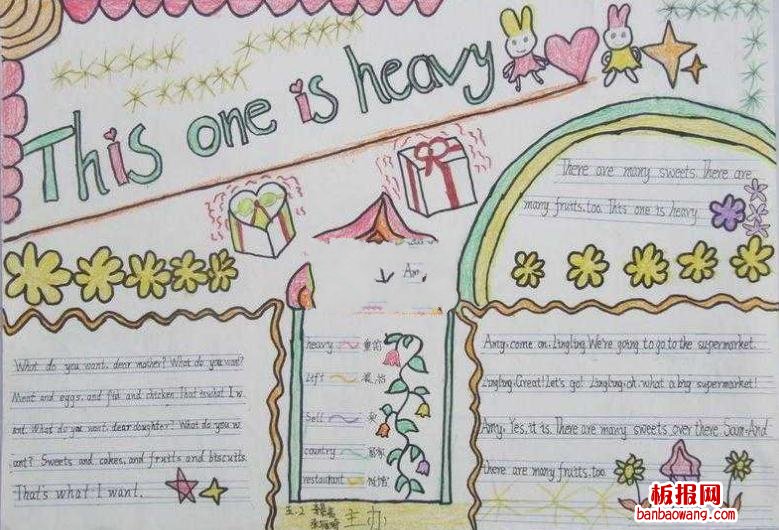 This one is heavy
There are many sweets. There are
many fruits, too. This one is heavy
Am
heavy 重的
Lift
Sell 卖
country 国家
restaurant 饭馆
What do you want, dear mother? What do you want?
Meat and eggs, and fish and chicken. That is what I w
ant. What do you want, dear daughter? What do you w
ant? Sweets and cakes, and fruits and biscuits.
That's what I want.
Amy, come on, Lingling. We're going to go to the supermarket.
Lingling, Great! Let's go! Lingling, oh, what a big supermarket!
Amy, Yes, it is. There are many sweets over there Sam. And
there are many fruits, too
五.2
主办
板报网
banbaowang.com